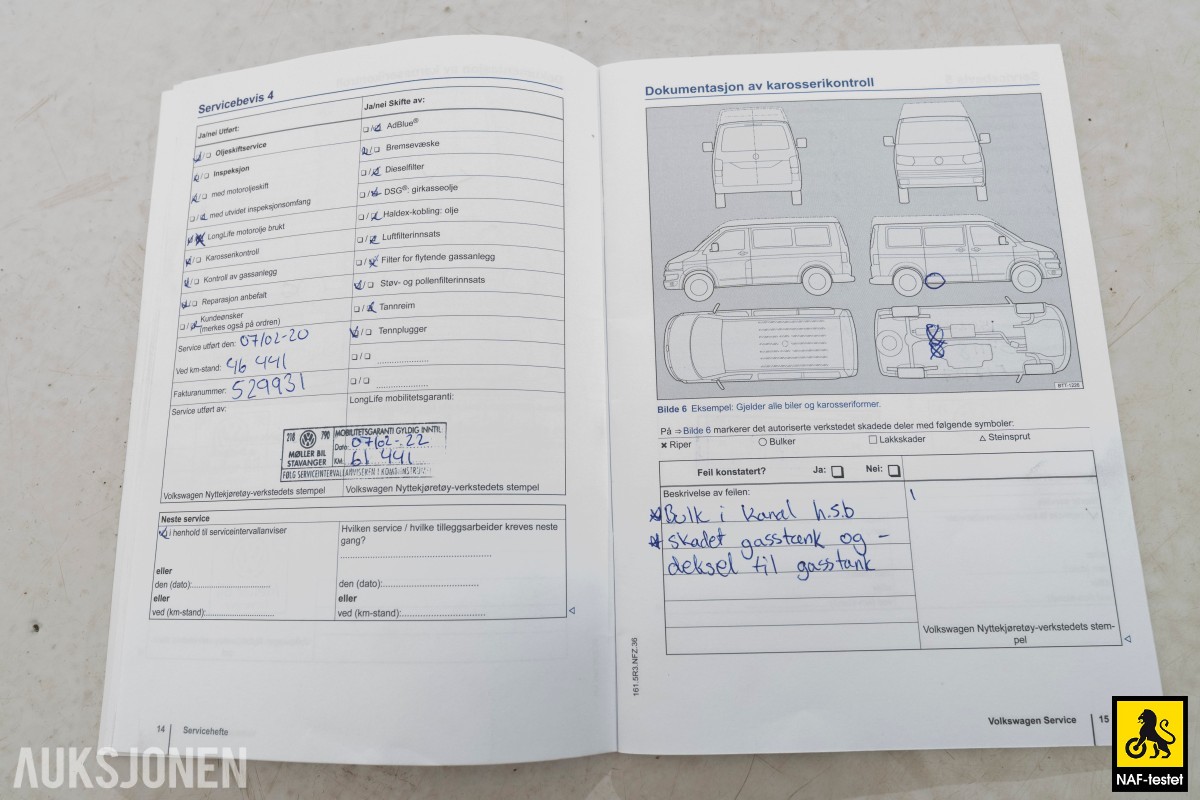 Servicebevis 4
Ja/nei Utført:
Ja/nei Skifte av:
❏/❏ Oljeskiftservice
❏/❏ AdBlue®
❏/❏ Inspeksjon
❏/❏ Bremsevæske
❏/❏ med motoroljeskift
❏/❏ Dieselfilter
❏/❏ med utvidet inspeksjonsomfang
❏/❏ DSG®: girkasseolje
❏/❏ LongLife motorolje brukt
❏/❏ Haldex-kobling: olje
❏/❏ Karosserikontroll
❏/❏ Luftfilterinnsats
❏/❏ Kontroll av gassanlegg
❏/❏ Filter for flytende gassanlegg
❏/❏ Reparasjon anbefalt
❏/❏ Støv- og pollenfilterinnsats
❏/❏ Kundeønsker
(merkes også på ordren)
❏/❏ Tannreim
Service utført den: 07/02-20
❏/❏ Tennplugger
Ved km-stand: 46 441
❏/❏ ....................
Fakturanummer: 529931
❏/❏ ....................
Service utført av:
LongLife mobilitetsgaranti:
218 790
MØLLER BIL
STAVANGER
MOBILITETSGARANTI GYLDIG INNTIL
Dato 07/02-22
KM. 61 441
FØLG SERVICEINTERVALLANVISEREN I KOMBIINSTRUM.
Volkswagen Nyttekjøretøy-verkstedets stempel
Volkswagen Nyttekjøretøy-verkstedets stempel
Neste service
❏ i henhold til serviceintervallanviser
Hvilken service / hvilke tilleggsarbeider kreves neste
gang?
eller
den (dato):....................
den (dato):....................
eller
eller
ved (km-stand):....................
ved (km-stand):....................
14
Servicehefte
Dokumentasjon av karosserikontroll
BTT-1226
Bilde 6 Eksempel: Gjelder alle biler og karosseriformer.
På ⇒ Bilde 6 markerer det autoriserte verkstedet skadede deler med følgende symboler:
✖ Riper
○ Bulker
□ Lakkskader
△ Steinsprut
Feil konstatert? Ja: ❏ Nei: ❏
Beskrivelse av feilen:
* Bulk i kanal h.s.b
* skadet gasstank og -
deksel til gasstank
Volkswagen Nyttekjøretøy-verkstedets stem-
pel
161.5R3.NFZ.36
Volkswagen Service
15
AUKSJONEN
NAF-testet